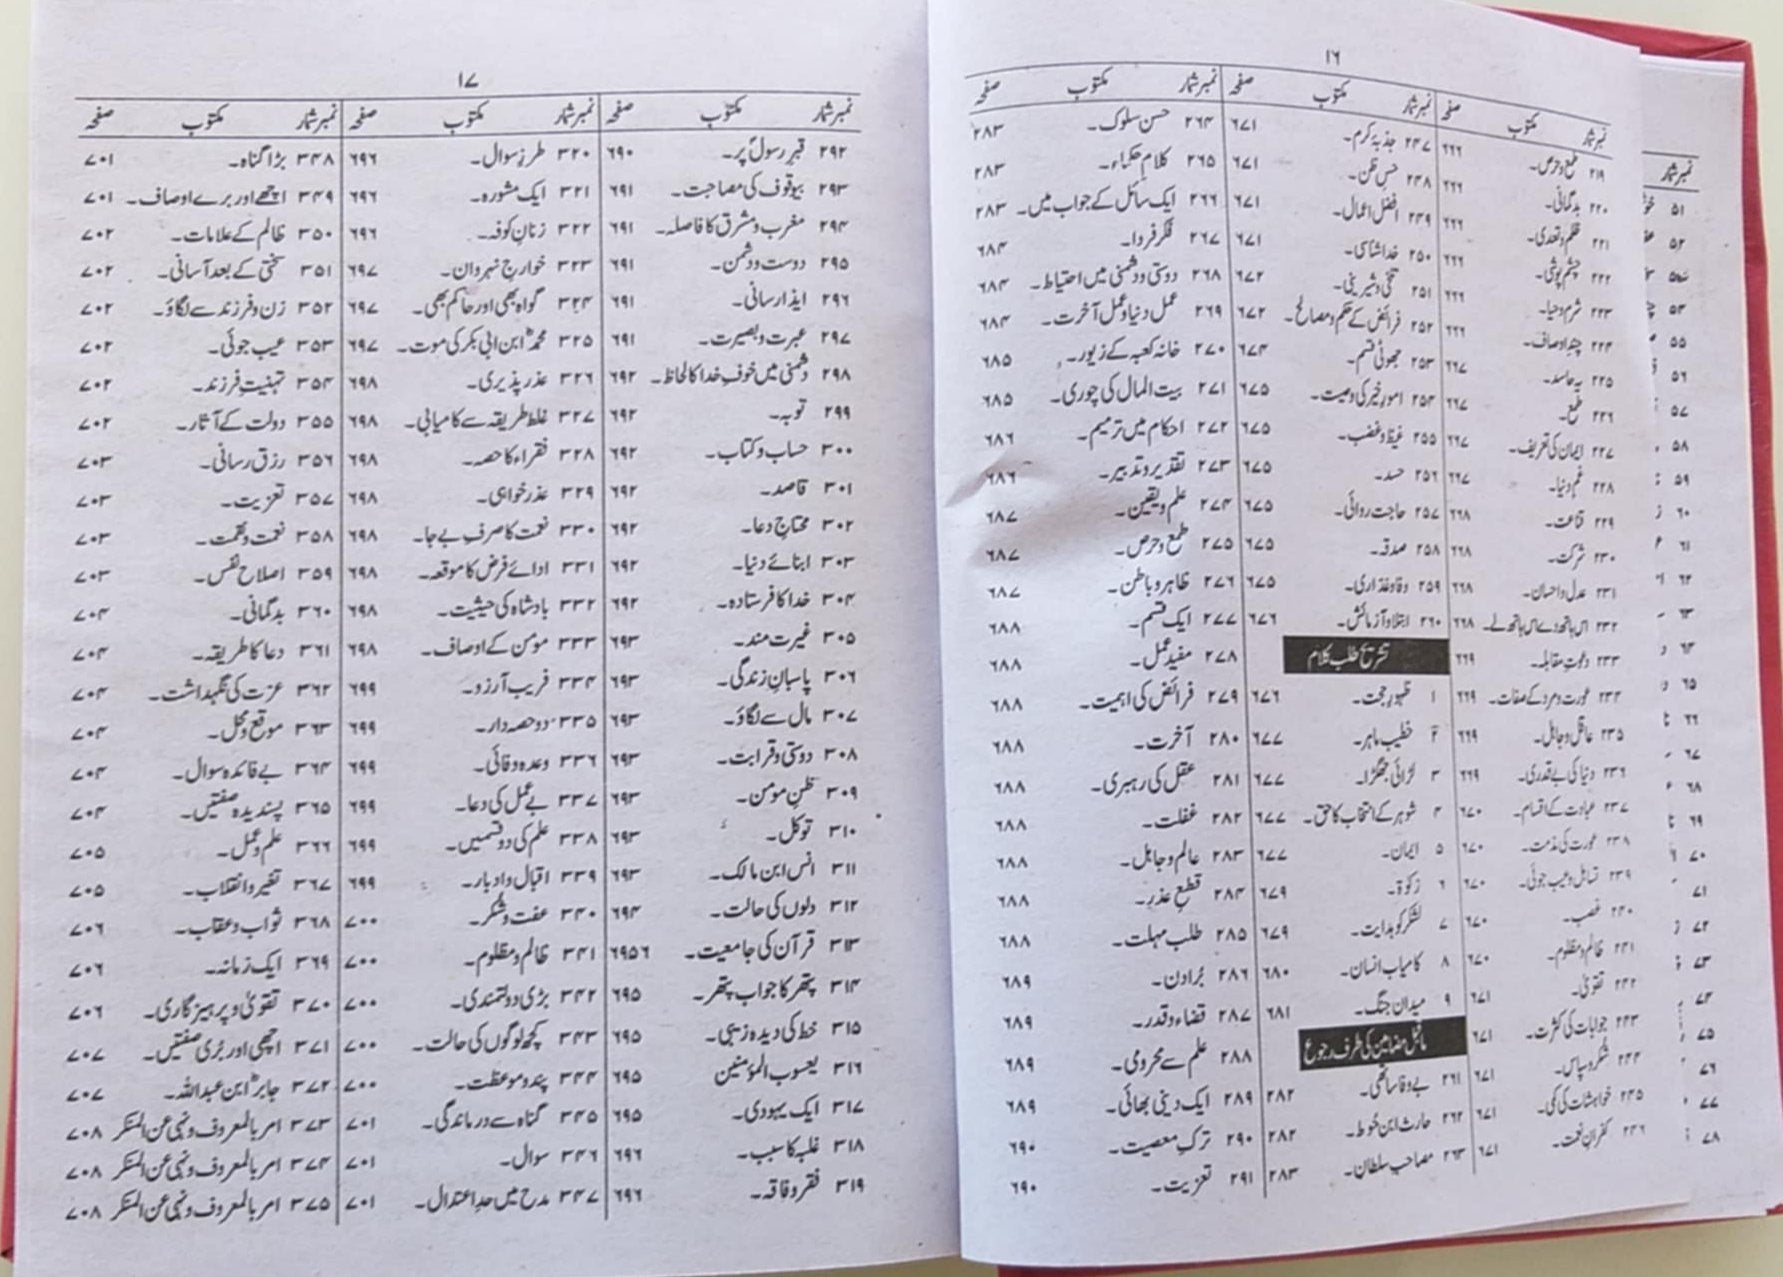 ۱۶
نمبر شمار مکتوب صفحہ
۲۱۹ طمع و حرص۔ ۶۶۶
۲۲۰ بدگمانی۔ ۶۶۶
۲۲۱ ظلم و تعدی۔ ۶۶۶
۲۲۲ چشم پوشی۔ ۶۶۶
۲۲۳ شرم و حیا۔ ۶۶۶
۲۲۴ چند اوصاف۔ ۶۶۶
۲۲۵ حاسد۔ ۶۶۷
۲۲۶ طمع۔ ۶۶۷
۲۲۷ ایمان کی تعریف۔ ۶۶۷
۲۲۸ غم دنیا۔ ۶۶۷
۲۲۹ قناعت۔ ۶۶۸
۲۳۰ شرکت۔ ۶۶۸
۲۳۱ عدل و احسان۔ ۶۶۸
۲۳۲ اس ہاتھ دے اس ہاتھ لے۔ ۶۶۸
۲۳۳ دعوتِ مقابلہ۔ ۶۶۹
۲۳۴ عورت و مرد کے صفات۔ ۶۶۹
۲۳۵ عاقل و جاہل۔ ۶۶۹
۲۳۶ دنیا کی بے قدری۔ ۶۶۹
۲۳۷ عبادت کے اقسام۔ ۶۷۰
۲۳۸ عورت کی مذمت۔ ۶۷۰
۲۳۹ تساہل و عیب جوئی۔ ۶۷۰
۲۴۰ غصب۔ ۶۷۰
۲۴۱ ظالم و مظلوم۔ ۶۷۰
۲۴۲ تقویٰ۔ ۶۷۱
۲۴۳ جوابات کی کثرت۔ ۶۷۱
۲۴۴ شکر و سپاس۔ ۶۷۱
۲۴۵ خواہشات کی کمی۔ ۶۷۱
۲۴۶ کفرانِ نعمت۔ ۶۷۱
نمبر شمار مکتوب صفحہ
۲۴۷ جذبۂ کرم۔ ۶۷۱
۲۴۸ حسنِ ظن۔ ۶۷۱
۲۴۹ افضل اعمال۔ ۶۷۱
۲۵۰ خدا شناسی۔ ۶۷۱
۲۵۱ تلخی و شیرینی۔ ۶۷۲
۲۵۲ فرائض کے حکم و مصالح۔ ۶۷۲
۲۵۳ جھوٹی قسم۔ ۶۷۴
۲۵۴ امورِ خیر کی وصیت۔ ۶۷۵
۲۵۵ غیظ و غضب۔ ۶۷۵
۲۵۶ حسد۔ ۶۷۵
۲۵۷ حاجت روائی۔ ۶۷۵
۲۵۸ صدقہ۔ ۶۷۵
۲۵۹ وفا و غداری۔ ۶۷۵
۲۶۰ ابتلا و آزمائش۔ ۶۷۶
تشریح طلب کلام
۱ ظہورِ حجت۔ ۶۷۶
۲ خطیب ماہر۔ ۶۷۷
۳ لڑائی جھگڑا۔ ۶۷۷
۴ شوہر کے انتخاب کا حق۔ ۶۷۷
۵ ایمان۔ ۶۷۷
۶ زکوٰۃ۔ ۶۷۹
۷ لشکر کو ہدایت۔ ۶۷۹
۸ کامیاب انسان۔ ۶۸۰
۹ میدانِ جنگ۔ ۶۸۱
مضامین کی طرف رجوع
۲۶۱ بے وفا ساتھی۔ ۶۸۲
۲۶۲ حارث ابن حُوط۔ ۶۸۲
۲۶۳ مصاحبِ سلطان۔ ۶۸۳
نمبر شمار مکتوب صفحہ
۲۶۴ حسن سلوک۔ ۶۸۳
۲۶۵ کلامِ حکماء۔ ۶۸۳
۲۶۶ ایک سائل کے جواب میں۔ ۶۸۳
۲۶۷ فکرِ فردا۔ ۶۸۴
۲۶۸ دوستی و دشمنی میں احتیاط۔ ۶۸۴
۲۶۹ عمل دنیا و عمل آخرت۔ ۶۸۴
۲۷۰ خانہ کعبہ کے زیور۔ ۶۸۵
۲۷۱ بیت المال کی چوری۔ ۶۸۵
۲۷۲ احکام میں ترمیم۔ ۶۸۶
۲۷۳ تقدیر و تدبیر۔ ۶۸۶
۲۷۴ علم و یقین۔ ۶۸۷
۲۷۵ طمع و حرص۔ ۶۸۷
۲۷۶ ظاہر و باطن۔ ۶۸۷
۲۷۷ ایک قسم۔ ۶۸۸
۲۷۸ مفید عمل۔ ۶۸۸
۲۷۹ فرائض کی اہمیت۔ ۶۸۸
۲۸۰ آخرت۔ ۶۸۸
۲۸۱ عقل کی رہبری۔ ۶۸۸
۲۸۲ غفلت۔ ۶۸۸
۲۸۳ عالم و جاہل۔ ۶۸۸
۲۸۴ قطعِ عذر۔ ۶۸۸
۲۸۵ طلب مہلت۔ ۶۸۸
۲۸۶ بُرا دن۔ ۶۸۹
۲۸۷ قضاء و قدر۔ ۶۸۹
۲۸۸ علم سے محرومی۔ ۶۸۹
۲۸۹ ایک دینی بھائی۔ ۶۸۹
۲۹۰ ترکِ معصیت۔ ۶۹۰
۲۹۱ تعزیت۔ ۶۹۰
۱۷
نمبر شمار مکتوب صفحہ
۲۹۲ قبرِ رسولؐ پر۔ ۶۹۰
۲۹۳ بیوقوف کی مصاحبت۔ ۶۹۱
۲۹۴ مغرب و مشرق کا فاصلہ۔ ۶۹۱
۲۹۵ دوست و دشمن۔ ۶۹۱
۲۹۶ ایذا رسانی۔ ۶۹۱
۲۹۷ عبرت و بصیرت۔ ۶۹۱
۲۹۸ دشمنی میں خوفِ خدا کا لحاظ۔ ۶۹۲
۲۹۹ توبہ۔ ۶۹۲
۳۰۰ حساب و کتاب۔ ۶۹۲
۳۰۱ قاصد۔ ۶۹۲
۳۰۲ محتاجِ دعا۔ ۶۹۲
۳۰۳ ابنائے دنیا۔ ۶۹۲
۳۰۴ خدا کا فرستادہ۔ ۶۹۲
۳۰۵ غیرت مند۔ ۶۹۳
۳۰۶ پاسبانِ زندگی۔ ۶۹۳
۳۰۷ مال سے لگاؤ۔ ۶۹۳
۳۰۸ دوستی و قرابت۔ ۶۹۳
۳۰۹ ظنِ مومن۔ ۶۹۳
۳۱۰ توکل۔ ۶۹۳
۳۱۱ انس ابن مالک۔ ۶۹۳
۳۱۲ دلوں کی حالت۔ ۶۹۴
۳۱۳ قرآن کی جامعیت۔ ۶۹۵۶
۳۱۴ پتھر کا جواب پتھر۔ ۶۹۵
۳۱۵ خط کی دیدہ زیبی۔ ۶۹۵
۳۱۶ یعسوب المؤمنین ۶۹۵
۳۱۷ ایک یہودی۔ ۶۹۵
۳۱۸ غلبہ کا سبب۔ ۶۹۶
۳۱۹ فقر و فاقہ۔ ۶۹۶
نمبر شمار مکتوب صفحہ
۳۲۰ طرزِ سوال۔ ۶۹۶
۳۲۱ ایک مشورہ۔ ۶۹۶
۳۲۲ زنانِ کوفہ۔ ۶۹۶
۳۲۳ خوارجِ نہروان۔ ۶۹۷
۳۲۴ گواہ بھی اور حاکم بھی۔ ۶۹۷
۳۲۵ محمدؓ ابن ابی بکر کی موت۔ ۶۹۷
۳۲۶ عذر پذیری۔ ۶۹۸
۳۲۷ غلط طریقہ سے کامیابی۔ ۶۹۸
۳۲۸ فقراء کا حصہ۔ ۶۹۸
۳۲۹ عذر خواہی۔ ۶۹۸
۳۳۰ نعمت کا صرفِ بے جا۔ ۶۹۸
۳۳۱ ادائے فرض کا موقعہ۔ ۶۹۸
۳۳۲ بادشاہ کی حیثیت۔ ۶۹۸
۳۳۳ مومن کے اوصاف۔ ۶۹۸
۳۳۴ فریبِ آرزو۔ ۶۹۹
۳۳۵ دو حصہ دار۔ ۶۹۹
۳۳۶ وعدہ وفائی۔ ۶۹۹
۳۳۷ بے عمل کی دعا۔ ۶۹۹
۳۳۸ علم کی دو قسمیں۔ ۶۹۹
۳۳۹ اقبال و ادبار۔ ۶۹۹
۳۴۰ عفت و شکر۔ ۷۰۰
۳۴۱ ظالم و مظلوم۔ ۷۰۰
۳۴۲ بڑی دولتمندی۔ ۷۰۰
۳۴۳ کچھ لوگوں کی حالت۔ ۷۰۰
۳۴۴ پند و موعظت۔ ۷۰۰
۳۴۵ گناہ سے درماندگی۔ ۷۰۱
۳۴۶ سوال۔ ۷۰۱
۳۴۷ مدح میں حدِ اعتدال۔ ۷۰۱
نمبر شمار مکتوب صفحہ
۳۴۸ بڑا گناہ۔ ۷۰۱
۳۴۹ اچھے اور برے اوصاف۔ ۷۰۱
۳۵۰ ظالم کے علامات۔ ۷۰۲
۳۵۱ سختی کے بعد آسانی۔ ۷۰۲
۳۵۲ زن و فرزند سے لگاؤ۔ ۷۰۲
۳۵۳ عیب جوئی۔ ۷۰۲
۳۵۴ تہنیتِ فرزند۔ ۷۰۲
۳۵۵ دولت کے آثار۔ ۷۰۲
۳۵۶ رزق رسانی۔ ۷۰۳
۳۵۷ تعزیت۔ ۷۰۳
۳۵۸ نعمت و نقمت۔ ۷۰۳
۳۵۹ اصلاح نفس۔ ۷۰۳
۳۶۰ بدگمانی۔ ۷۰۴
۳۶۱ دعا کا طریقہ۔ ۷۰۴
۳۶۲ عزت کی نگہداشت۔ ۷۰۴
۳۶۳ موقع و محل۔ ۷۰۴
۳۶۴ بے فائدہ سوال۔ ۷۰۴
۳۶۵ پسندیدہ صفتیں۔ ۷۰۴
۳۶۶ علم و عمل۔ ۷۰۵
۳۶۷ تغیر و انقلاب۔ ۷۰۵
۳۶۸ ثواب و عقاب۔ ۷۰۶
۳۶۹ ایک زمانہ۔ ۷۰۶
۳۷۰ تقویٰ و پرہیزگاری۔ ۷۰۶
۳۷۱ اچھی اور بُری صفتیں۔ ۷۰۷
۳۷۲ جابرؓ ابن عبداللہ۔ ۷۰۷
۳۷۳ امر بالمعروف و نہی عن المنکر ۷۰۸
۳۷۴ امر بالمعروف و نہی عن المنکر ۷۰۸
۳۷۵ امر بالمعروف و نہی عن المنکر ۷۰۸